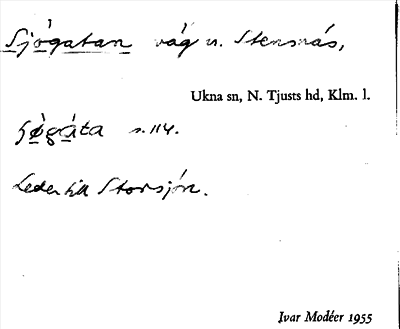 Sjögatan väg v. Stensnäs,
Ukna sn, N. Tjusts hd, Klm. l.
s. 114.
Leder till Storsjön.
Ivar Modéer 1955